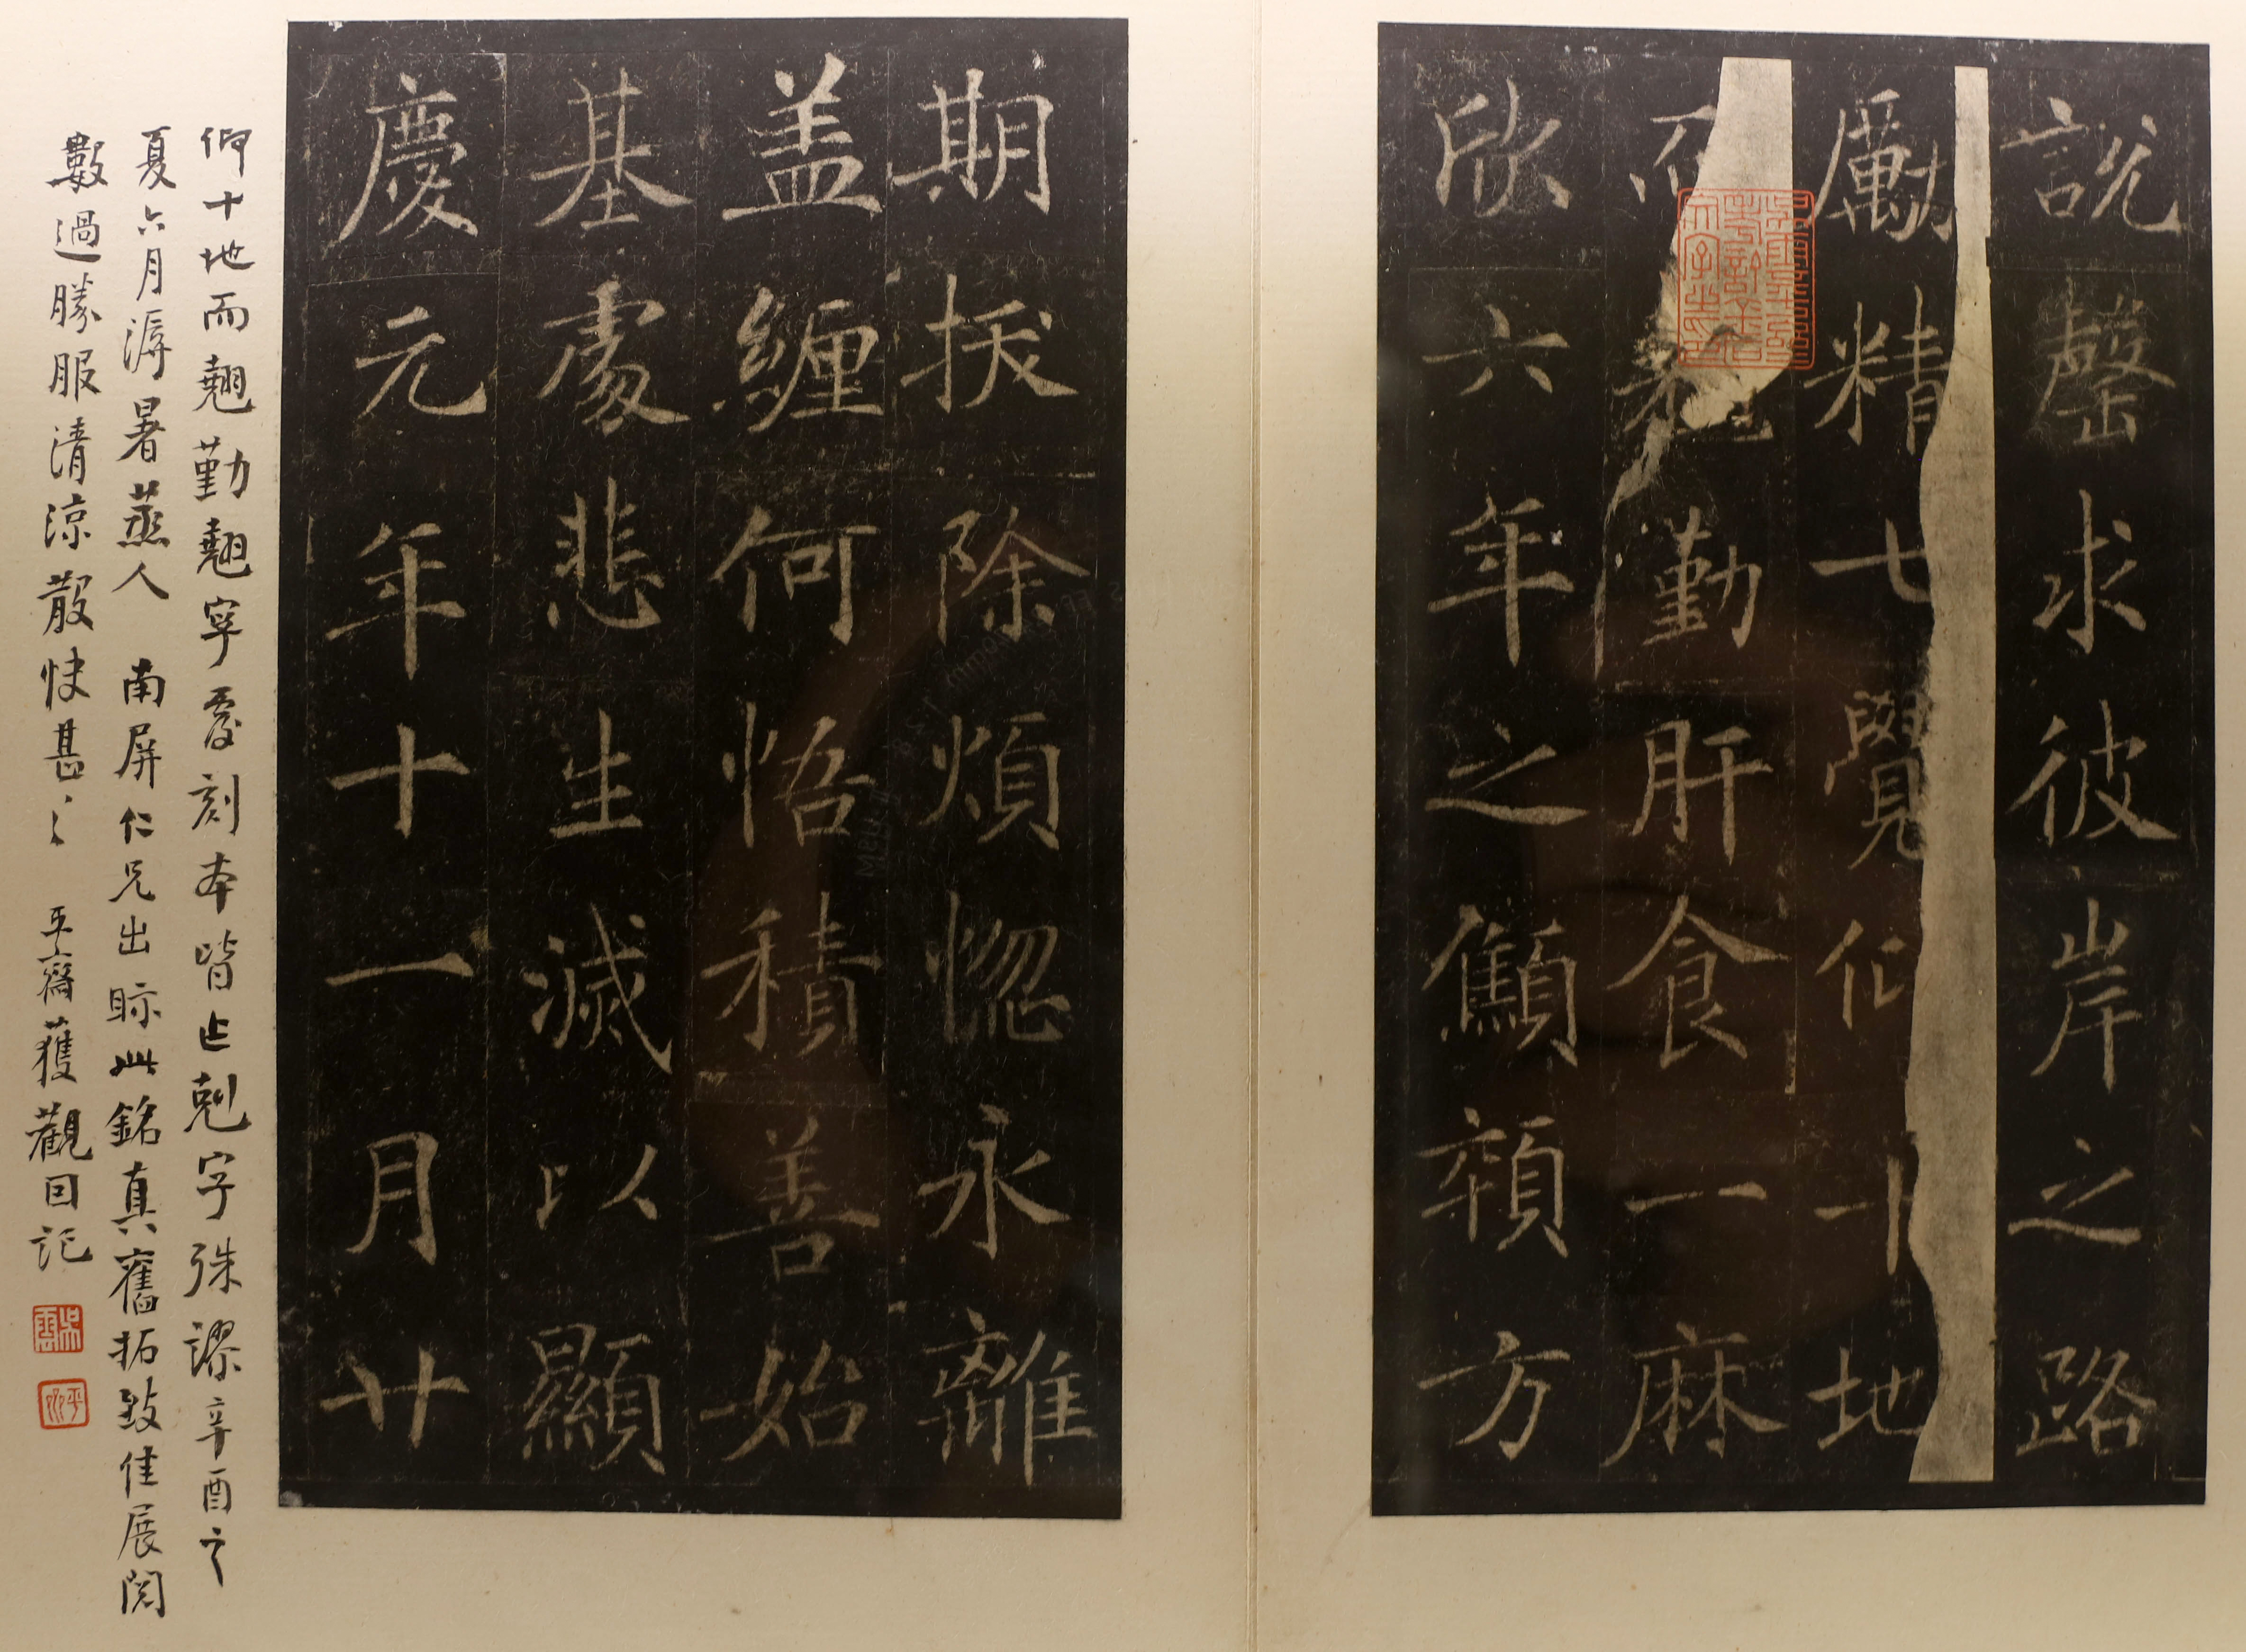 說罄求彼岸之路
勵精七覺仰十地
勤肝食一麻
欣六年之顦顇方
期拔除煩惱永離
盖緾何悟積善始
基處悲生滅以顯
慶元年十一月廿
仰十地而翹勤翹寧處刻本皆作剋字殊謬辛酉之
夏六月溽暑蒸人 南屏仁兄出眎此銘真舊拓致佳展閱
數過勝服清涼散快甚〻 平齋獲觀因記
吳雲